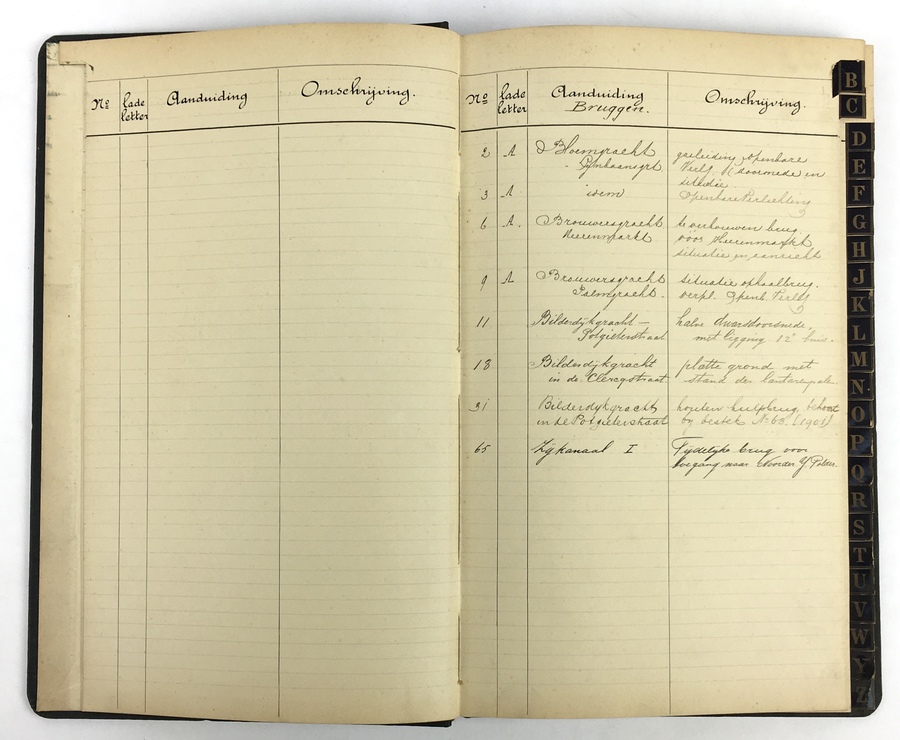 No
lade
letter
Aanduiding
Omschrijving.
No
lade
letter
Aanduiding
Bruggen.
Omschrijving.
2 A Bloemgracht
Lijnbaansgrt.
geleiding openbare
Verl. doorsnede en
situatie
3 A idem
Openbare Verlichting
6 A. Brouwersgracht
Heerenmarkt
te verbouwen brug
voor Heerenmarkt
situatie en aanzicht
9 A Brouwersgracht
Palmgracht.
situatie ophaalbrug.
verpl. Openb. Verl.
11 Bilderdijkgracht —
Potgieterstraat
halve dwarsdoorsnede
met ligging 12"
18 Bilderdijkgracht
in de Clercqstraat
platte grond met
stand der lantaarnpalen.
31 Bilderdijkgracht
in de Potgieterstraat
houten hulpbrug, behoort
by bestek No 63. (1901)
65 Zijkanaal I
Tijdelijke brug voor
toegang naar Noorder Y Polder.
B
C
D
E
F
G
H
J
K
L
M
N
O
P
Q
R
S
T
U
V
W
Y
Z